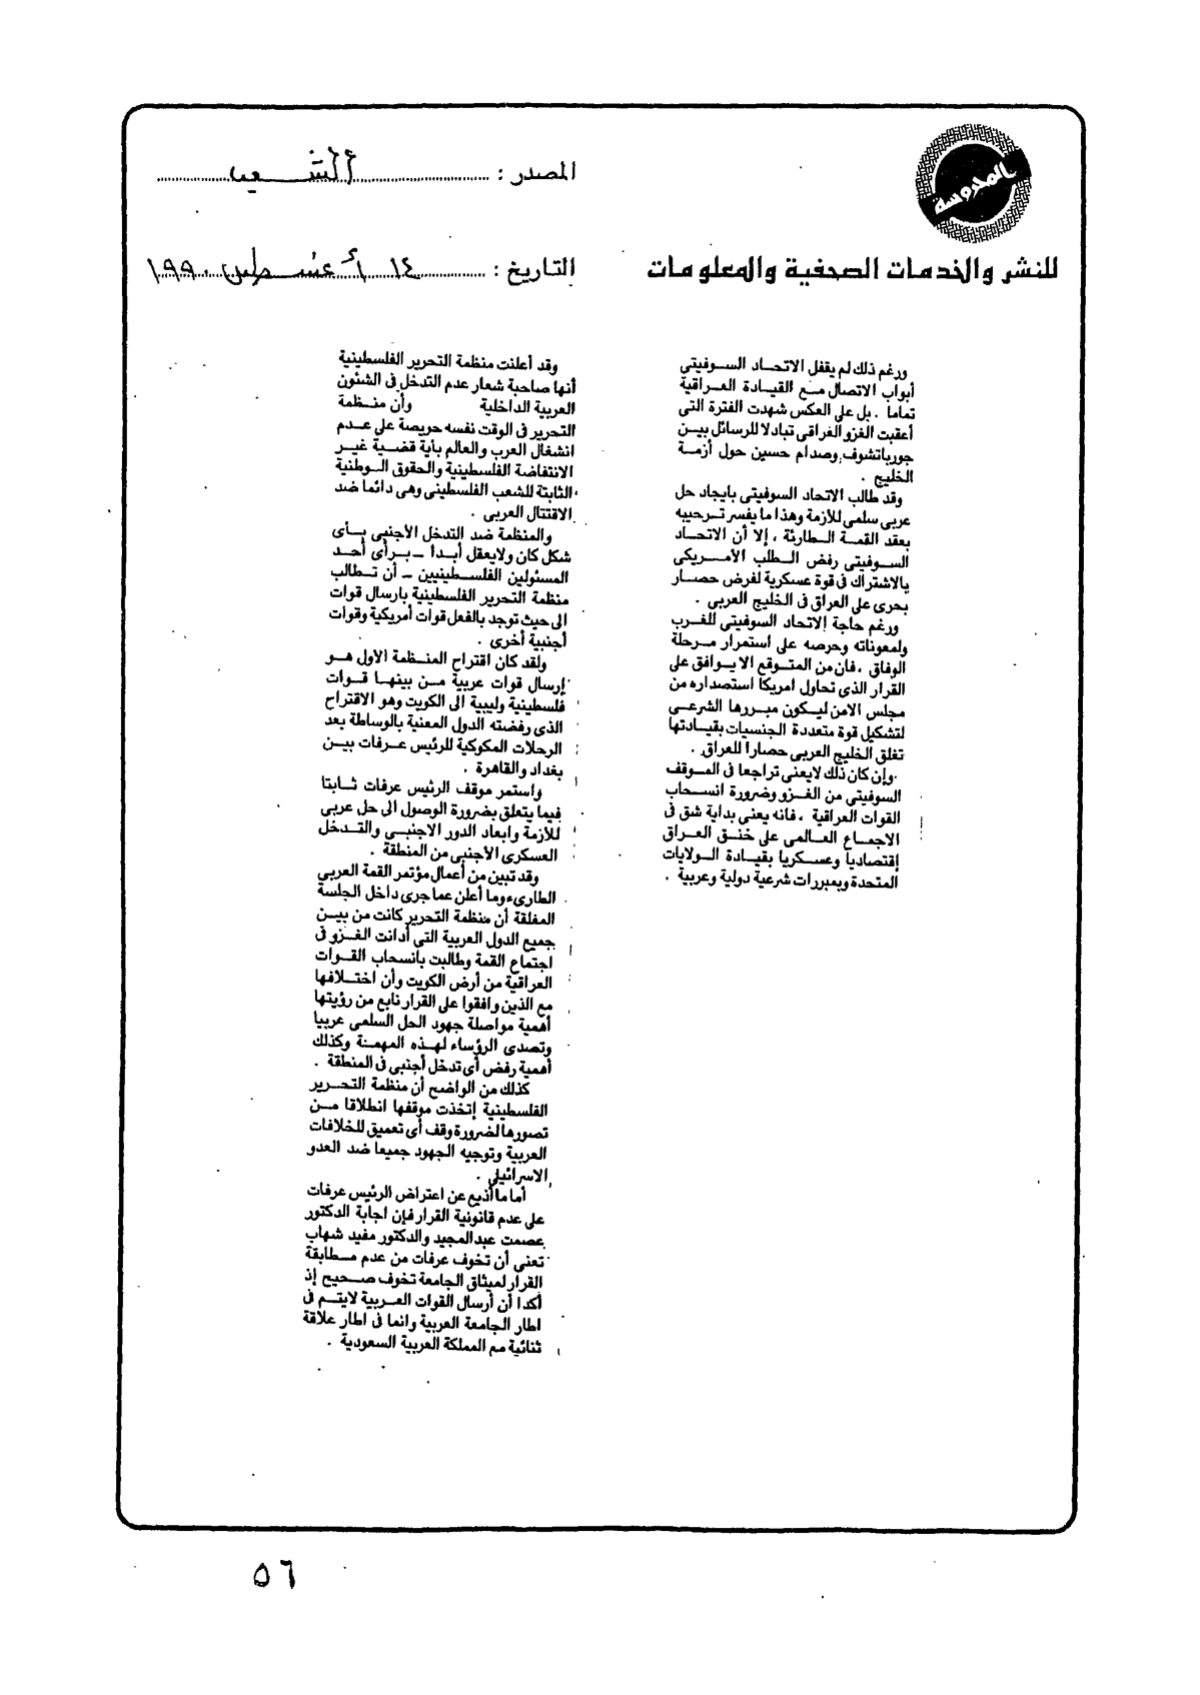 المحروسة
للنشر والخدمات الصحفية والمعلومات
المصدر : الشعب
التاريخ : ١٤ أغسطس ١٩٩٠
ورغم ذلك لم يقفل الاتحاد السوفيتى
أبواب الاتصال مع القيادة العراقية
تماما . بل على العكس شهدت الفترة التى
أعقبت الغزو العراقى تبادلا للرسائل بين
جورباتشوف وصدام حسين حول أزمة
الخليج .
وقد طالب الاتحاد السوفيتى بايجاد حل
عربى سلمى للأزمة وهذا ما يفسر ترحيبه
بعقد القمة الطارئة ، إلا أن الاتحاد
السوفيتى رفض الطلب الأمريكى
بالاشتراك فى قوة عسكرية لفرض حصار
بحرى على العراق فى الخليج العربى .
ورغم حاجة الاتحاد السوفيتى للغرب
ولمعوناته وحرصه على استمرار مرحلة
الوفاق ، فان من المتوقع الا يوافق على
القرار الذى تحاول امريكا استصداره من
مجلس الامن ليكون مبررها الشرعى
لتشكيل قوة متعددة الجنسيات بقيادتها
تغلق الخليج العربى حصارا للعراق .
وإن كان ذلك لايعنى تراجعا فى الموقف
السوفيتى من الغزو وضرورة انسحاب
القوات العراقية ، فانه يعنى بداية شق فى
الاجماع العالمى على خنق العراق
إقتصاديا وعسكريا بقيادة الولايات
المتحدة وبمبررات شرعية دولية وعربية .
وقد أعلنت منظمة التحرير الفلسطينية
أنها صاحبة شعار عدم التدخل فى الشئون
العربية الداخلية وأن منظمة
التحرير فى الوقت نفسه حريصة على عدم
انشغال العرب والعالم بأية قضية غير
الانتفاضة الفلسطينية والحقوق الوطنية
الثابتة للشعب الفلسطينى وهى دائما ضد
الاقتتال العربى .
والمنظمة ضد التدخل الأجنبى بأى
شكل كان ولايعقل أبدا ــ برأى أحد
المسئولين الفلسطينيين ــ أن تطالب
منظمة التحرير الفلسطينية بارسال قوات
الى حيث توجد بالفعل قوات أمريكية وقوات
أجنبية أخرى .
ولقد كان اقتراح المنظمة الاول هو
إرسال قوات عربية من بينها قوات
فلسطينية وليبية الى الكويت وهو الاقتراح
الذى رفضته الدول المعنية بالوساطة بعد
الرحلات المكوكية للرئيس عرفات بين
بغداد والقاهرة .
واستمر موقف الرئيس عرفات ثابتا
فيما يتعلق بضرورة الوصول الى حل عربى
للأزمة وابعاد الدور الاجنبى والتدخل
العسكرى الأجنبى من المنطقة .
وقد تبين من أعمال مؤتمر القمة العربى
الطارىء وما أعلن عما جرى داخل الجلسة
المغلقة أن منظمة التحرير كانت من بين
جميع الدول العربية التى أدانت الغزو فى
اجتماع القمة وطالبت بانسحاب القوات
العراقية من أرض الكويت وأن اختلافها
مع الذين وافقوا على القرار نابع من رؤيتها
أهمية مواصلة جهود الحل السلمى عربيا
وتصدى الرؤساء لهذه المهمة وكذلك
أهمية رفض أى تدخل أجنبى فى المنطقة .
كذلك من الواضح أن منظمة التحرير
الفلسطينية إتخذت موقفها انطلاقا من
تصورها لضرورة وقف أى تعميق للخلافات
العربية وتوجيه الجهود جميعا ضد العدو
الاسرائيلى .
أما ما أذيع عن اعتراض الرئيس عرفات
على عدم قانونية القرار فإن اجابة الدكتور
عصمت عبدالمجيد والدكتور مفيد شهاب
تعنى أن تخوف عرفات من عدم مطابقة
القرار لميثاق الجامعة تخوف صحيح إذ
أكدا أن أرسال القوات العربية لايتم فى
اطار الجامعة العربية وانما فى اطار علاقة
ثنائية مع المملكة العربية السعودية .
٥٦